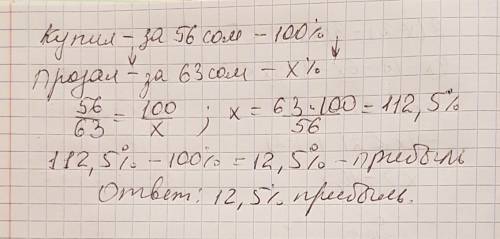 Купил - за 56 сом - 100%
Прозал - за 63 сом - x%
56/63 = 100/x ; x = 63·100/56 = 112,5%
112,5% - 100% = 12,5% - прибыль
Ответ: 12,5% прибыль.